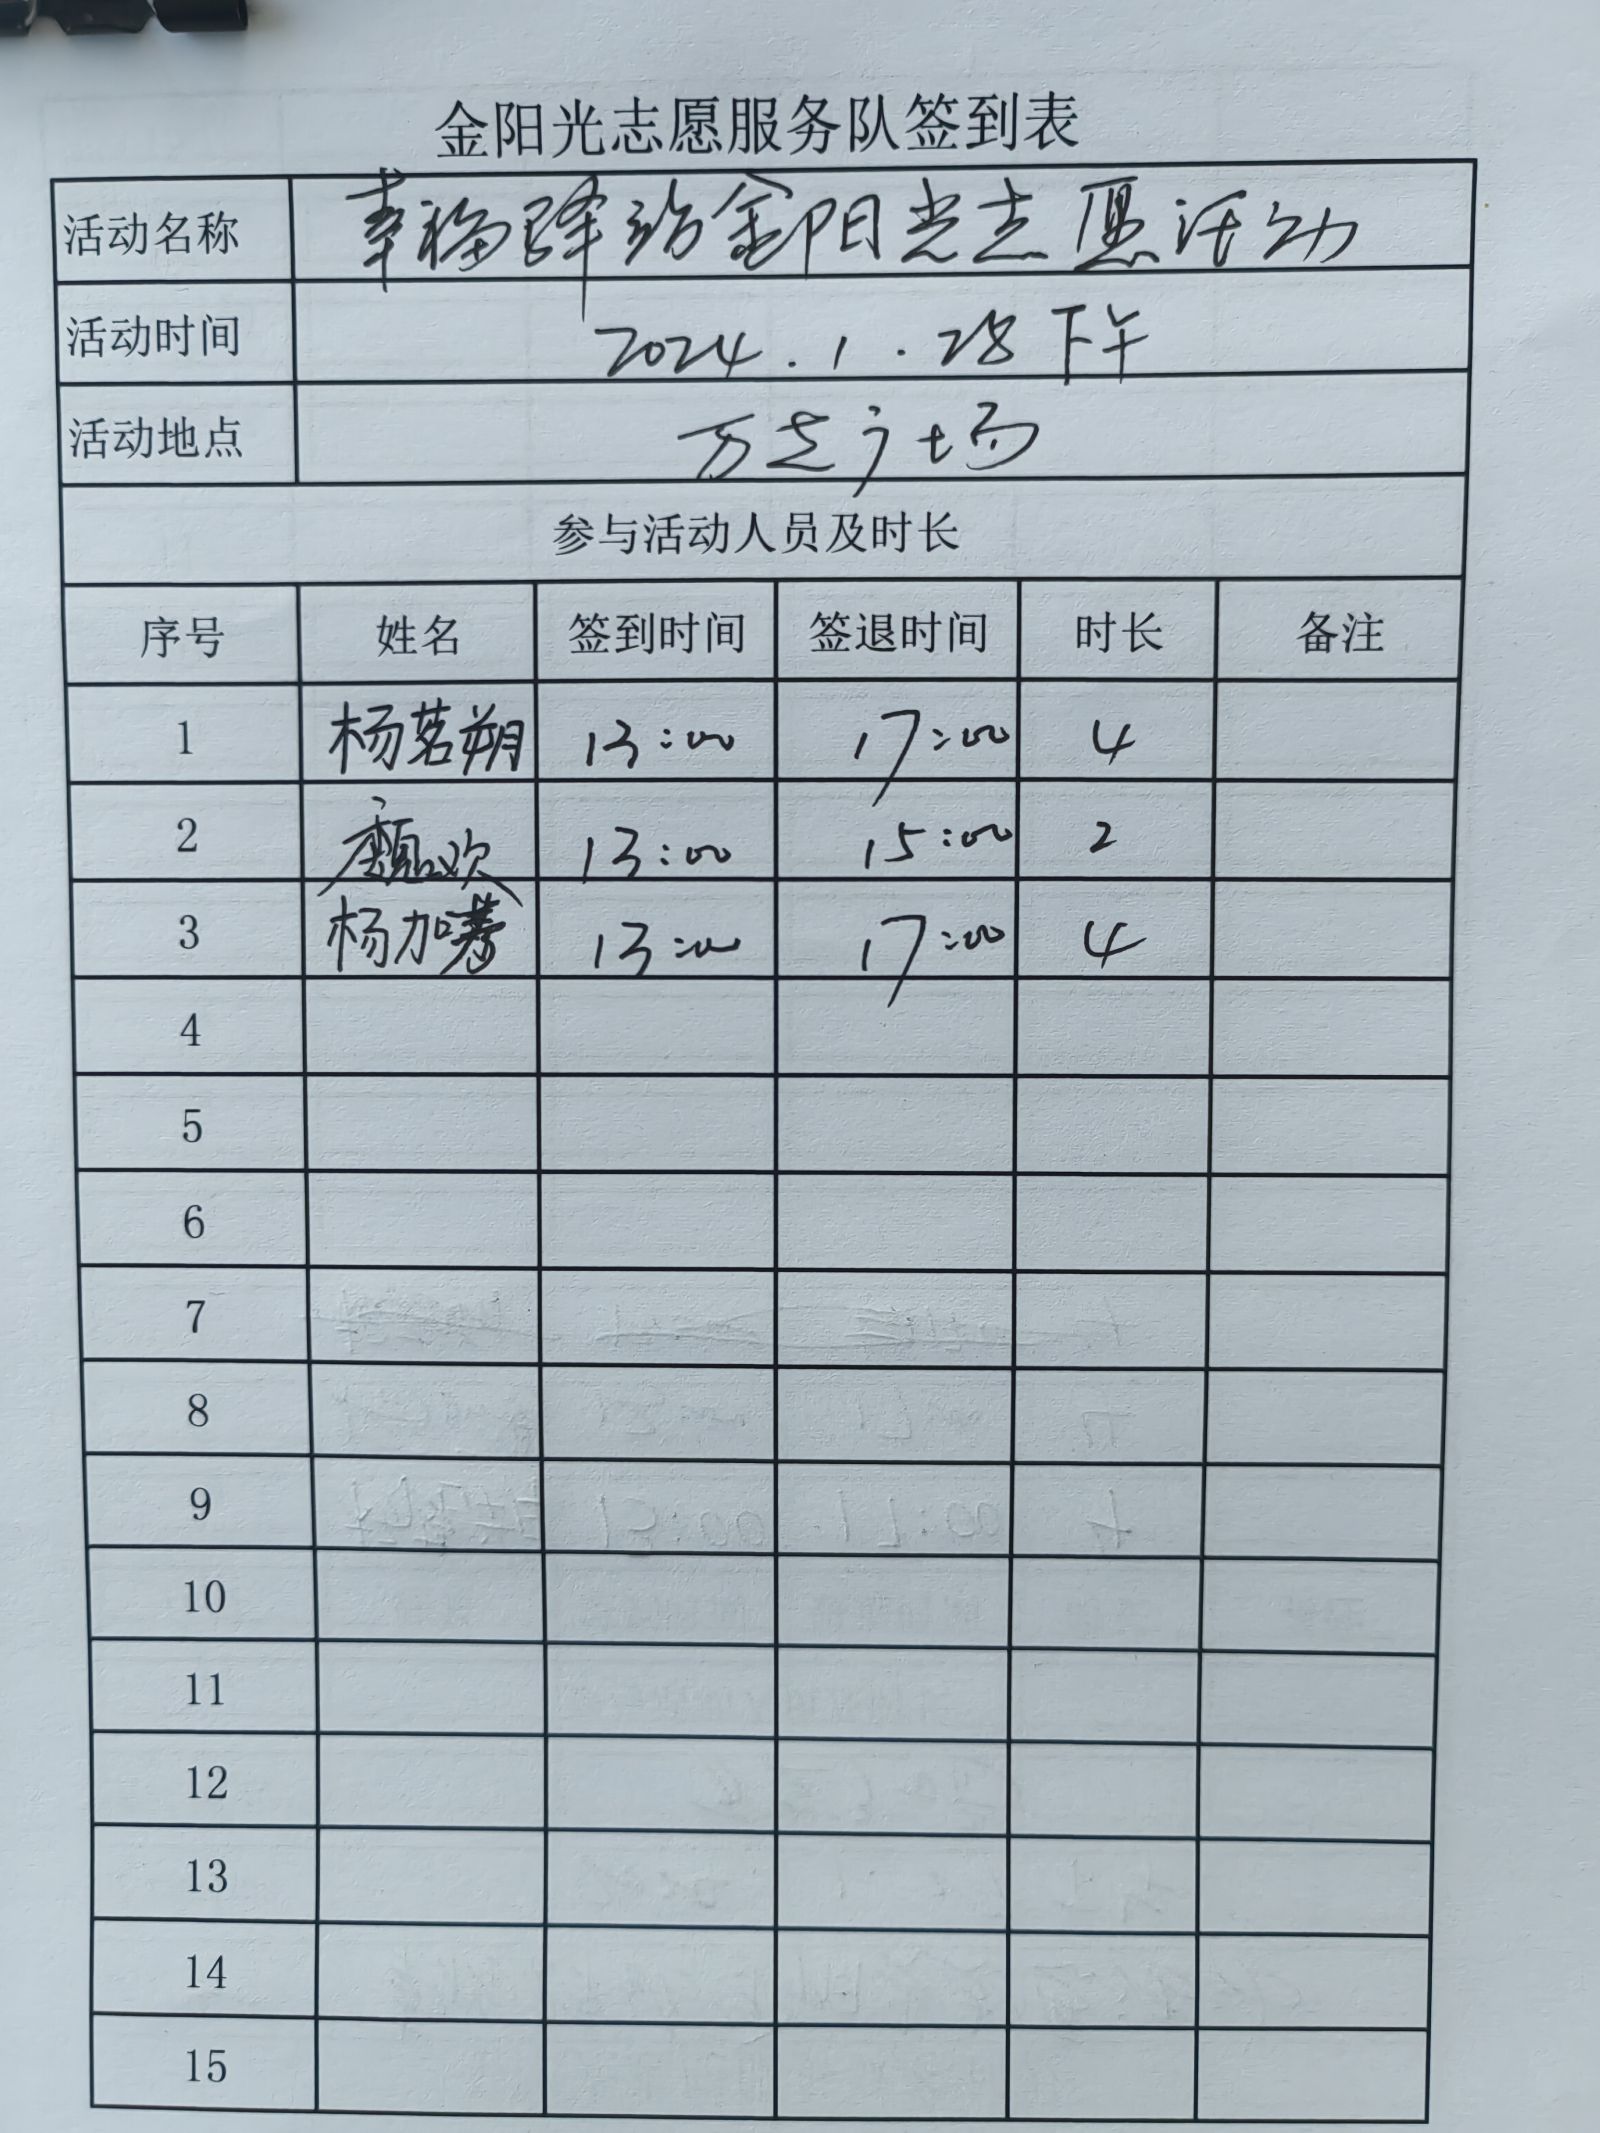 金阳光志愿服务队签到表
活动名称 幸福驿站金阳光志愿活动
活动时间 2024.1.28下午
活动地点 万达广场
参与活动人员及时长
序号 姓名 签到时间 签退时间 时长 备注
1 杨茗朔 13:00 17:00 4
2 欢 13:00 15:00 2
3 杨加 13:00 17:00 4
4
5
6
7
8
9
10
11
12
13
14
15